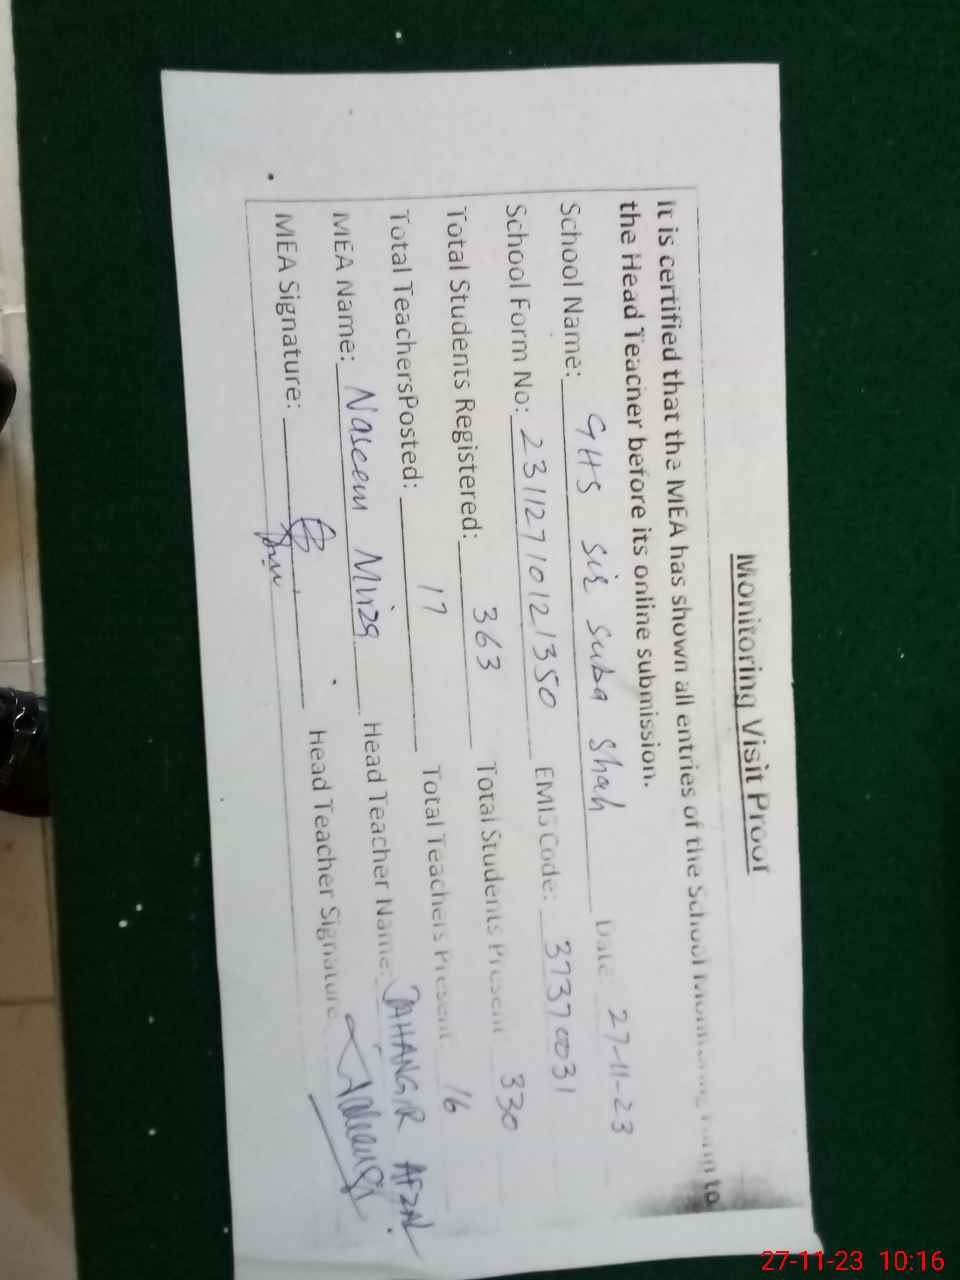 Monitoring Visit Proof
It is certified that the MEA has shown all entries of the School Monitoring Form to
the Head Teacher before its online submission.
School Name: GHS Sir Suba Shah Date 27-11-23
School Form No: 23112710121350 EMIS Code: 37370031
Total Students Registered: 363 Total Students Present 330
Total TeachersPosted: 17 Total Teachers Present 16
MEA Name: Naseem Mirza Head Teacher Name: JAHANGIR AFZAL
MEA Signature: Head Teacher Signature
27-11-23 10:16